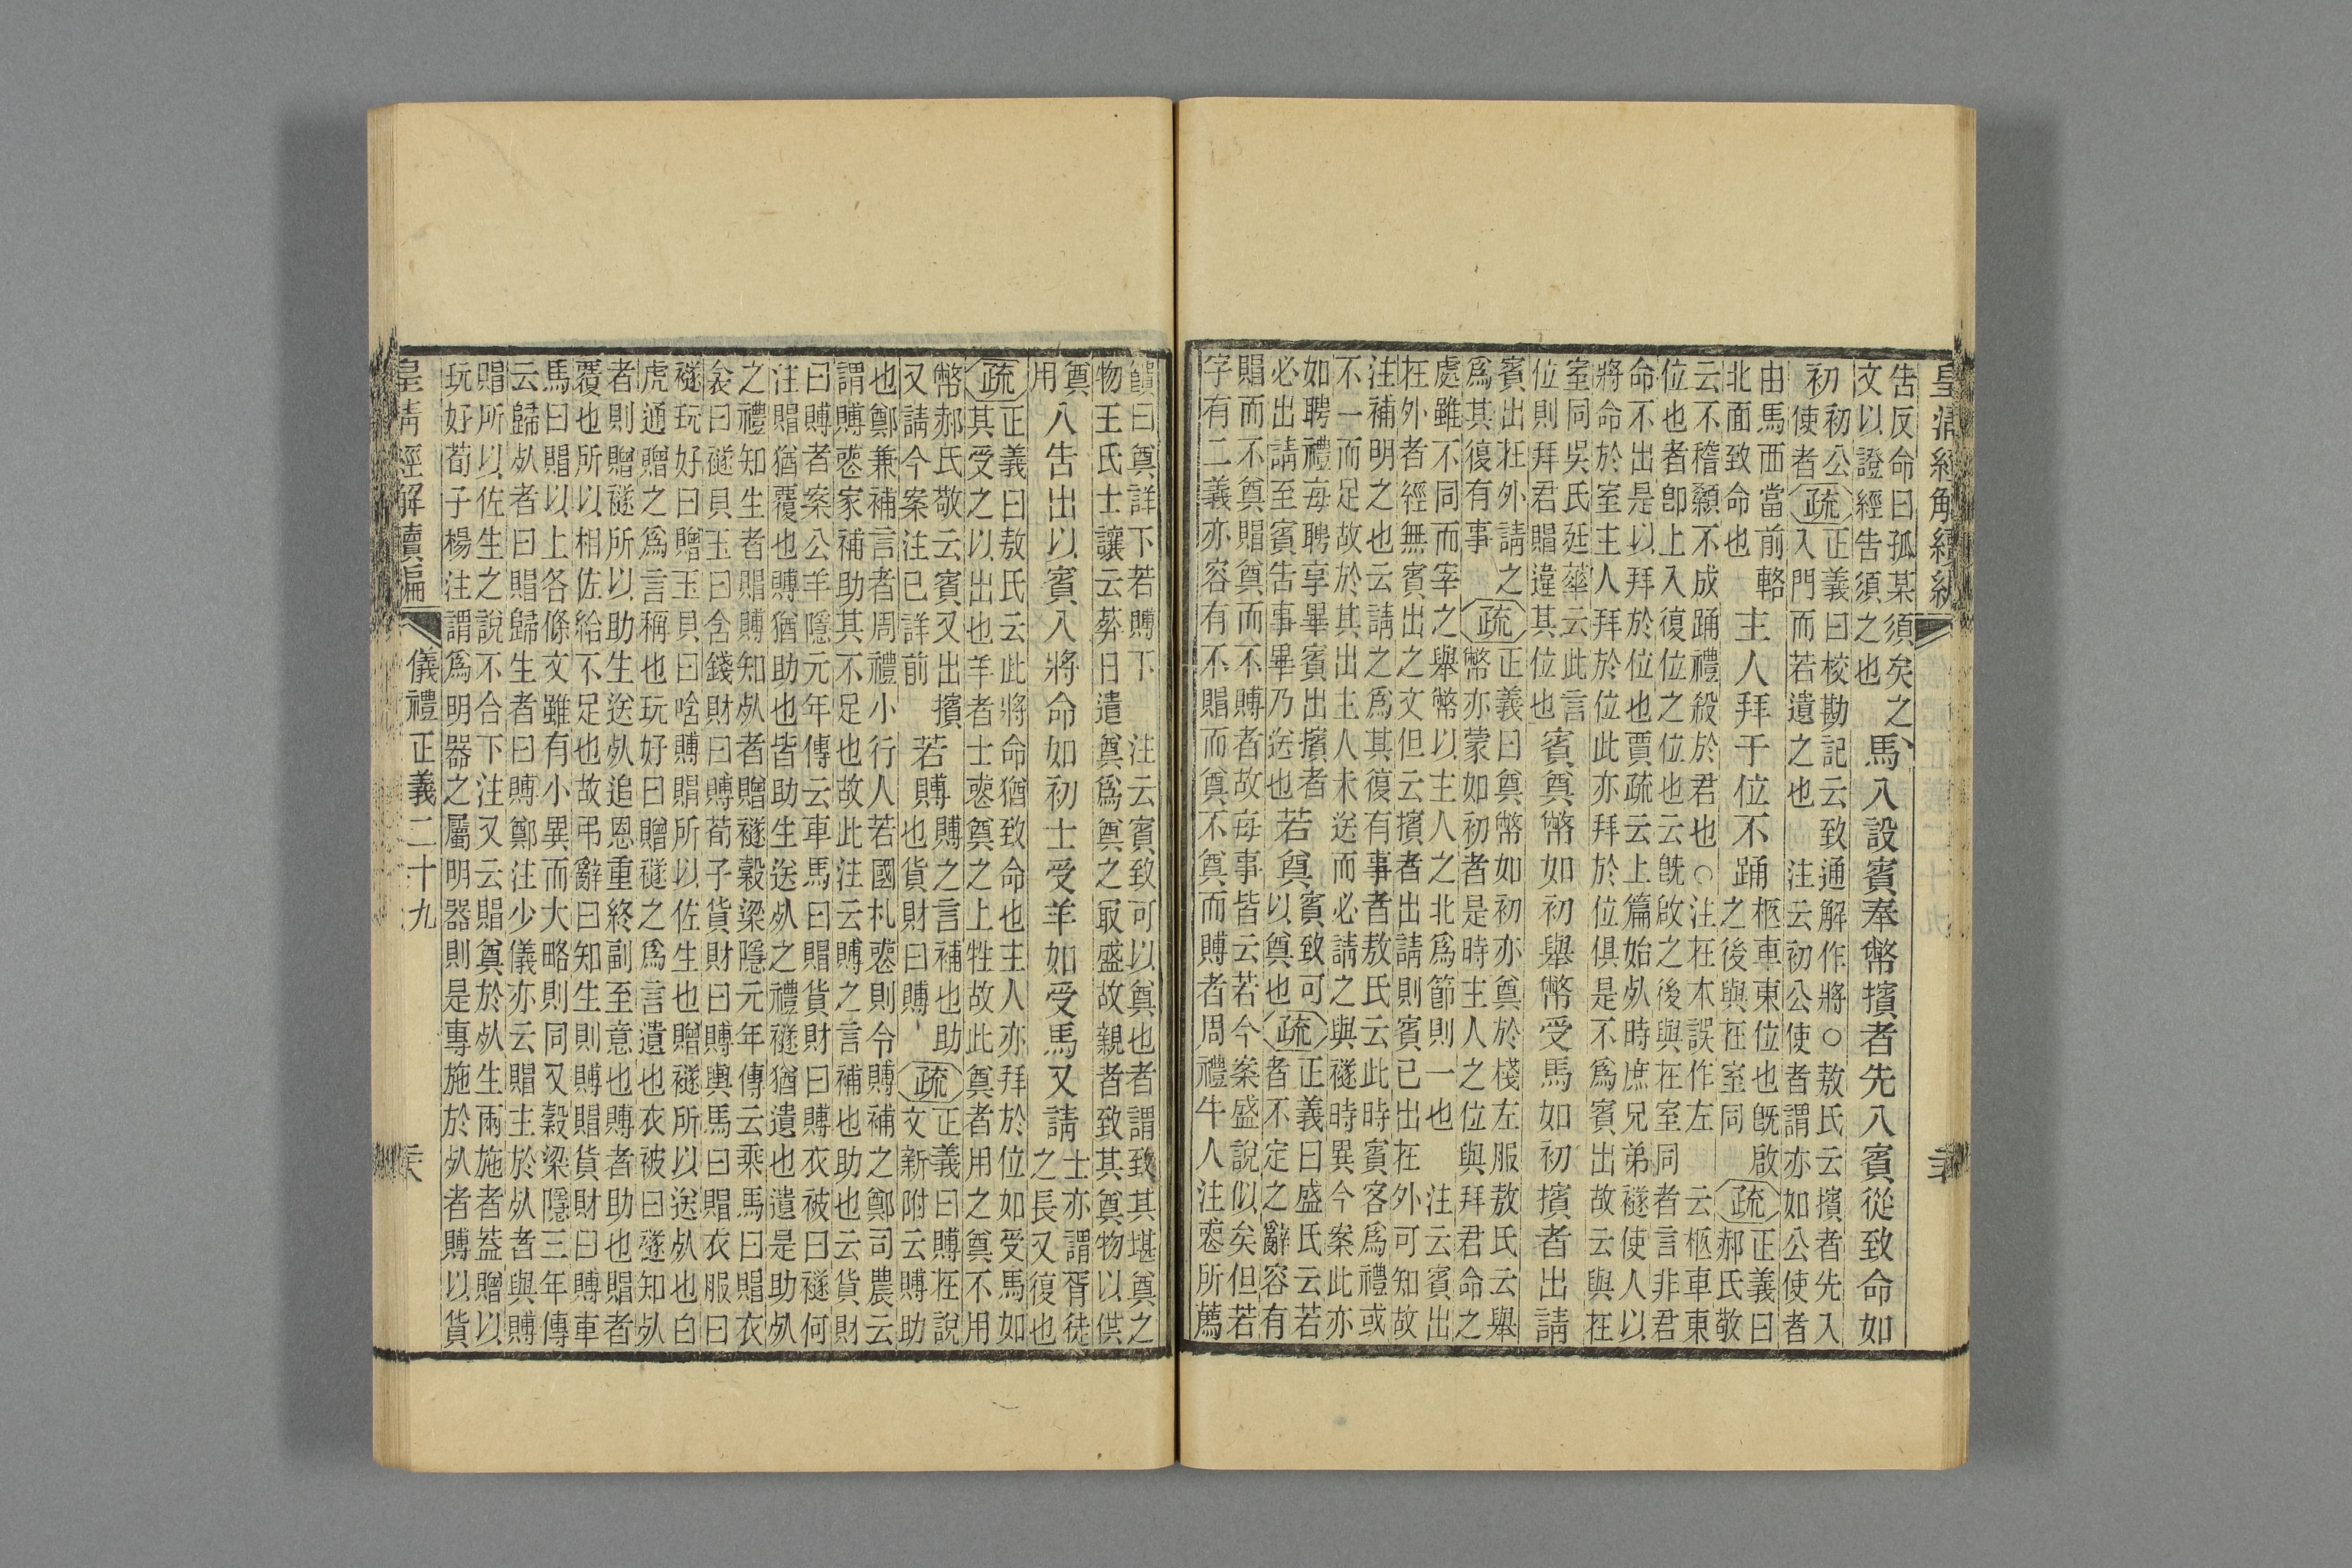 皇清經解續編
告反命曰孤某須矣之
文以證經告須之也
馬入設賓奉幣擯者先入賓從致命如
初
初公
使者
疏
正義曰校勘記云致通解作將○敖氏云擯者先入
入門而若遺之也 注云初公使者謂亦如公使者
由馬西當前輅
北面致命也
主人拜于位不踊
柩車東位也旣啟
之後與在室同
疏
正義曰
郝氏敬
云不稽顙不成踊禮殺於君也○注在本誤作左 云柩車東
位也者卽上入復位之位也云旣啟之後與在室同者言非君
命不出是以拜於位也賈疏云上篇始死時庶兄弟襚使人以
將命於室主人拜於位此亦拜於位俱是不爲賓出故云與在
室同吳氏廷華云此言
位則拜君賵違其位也
賓奠幣如初舉幣受馬如初擯者出請
賓出在外請之
爲其復有事
疏
正義曰奠幣如初亦奠於棧左服敖氏云舉
幣亦蒙如初者是時主人之位與拜君命之
處雖不同而宰之舉幣以主人之北爲節則一也 注云賓出
在外者經無賓出之文但云擯者出請則賓已出在外可知故
注補明之也云請之爲其復有事者敖氏云此時賓客爲禮或
不一而足故於其出主人未送而必請之與襚時異今案此亦
如聘禮每聘享畢賓出擯者
必出請至賓告事畢乃送也
若奠
賓致可
以奠也
疏
正義曰盛氏云若
者不定之辭容有
賵而不奠賵奠而不賻者故每事皆云若今案盛說似矣但若
字有二義亦容有不賵而奠不奠而賻者周禮牛人注喪所薦
饋曰奠詳下若賻下 注云賓致可以奠也者謂致其堪奠之
物王氏士讓云葬日遣奠爲奠之最盛故親者致其奠物以供
奠
用
入告出以賓入將命如初士受羊如受馬又請
士亦謂胥徒
之長又復也
疏
正義曰敖氏云此將命猶致命也主人亦拜於位如受馬如
其受之以出也羊者士喪奠之上牲故此奠者用之奠不用
幣郝氏敬云賓又出擯
又請今案注已詳前
若賻
賻之言補也助
也貨財曰賻
疏
正義曰賻在說
文新附云賻助
也鄭兼補言者周禮小行人若國札喪則令賻補之鄭司農云
謂賻喪家補助其不足也故此注云賻之言補也助也云貨財
曰賻者案公羊隱元年傳云車馬曰賵貨財曰賻衣被曰襚何
注賵猶覆也賻猶助也皆助生送死之禮襚猶遺也遺是助死
之禮知生者賵賻知死者贈襚穀梁隱元年傳云乘馬曰賵衣
衾曰襚貝玉曰含錢財曰賻荀子貨財曰賻輿馬曰賵衣服曰
襚玩好曰贈玉貝曰唅賻賵所以佐生也贈襚所以送死也白
虎通贈之爲言稱也玩好曰贈襚之爲言遺也衣被曰襚知死
者則贈襚所以助生送死追恩重終副至意也賻者助也賵者
覆也所以相佐給不足也故弔辭曰知生則賻賵貨財曰賻車
馬曰賵以上各條文雖有小異而大略則同又穀梁隱三年傳
云歸死者曰賵歸生者曰賻鄭注少儀亦云賵主於死者與賻
賵所以佐生之說不合下注又云賵奠於死生兩施者葢贈以
玩好荀子楊注謂爲明器之屬明器則是專施於死者賻以貨
皇清經解續編
儀禮正義二十九